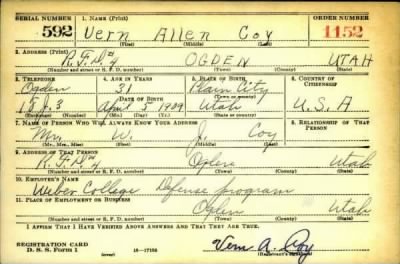 SERIAL NUMBER 1. NAME (Print) ORDER NUMBER
592 Vern Allen Coy 1152
(First) (Middle) (Last)
2. ADDRESS (Print)
R.F.D. #4 OGDEN UTAH
(Number and street or R. F. D. number) (Town) (County) (State)
3. TELEPHONE 4. AGE IN YEARS 5. PLACE OF BIRTH 6. COUNTRY OF CITIZENSHIP
Ogden 31 Plain City
DATE OF BIRTH
18 J 3 April 5 1909 Utah U.S.A
(Exchange) (Number) (Mo.) (Day) (Yr.) (State or country)
7. NAME OF PERSON WHO WILL ALWAYS KNOW YOUR ADDRESS 8. RELATIONSHIP OF THAT PERSON
W. J. Coy
(Mr., Mrs., Miss) (First) (Middle) (Last)
9. ADDRESS OF THAT PERSON
R.F.D. #4 Ogden Utah
(Number and street or R. F. D. number) (Town) (County) (State)
10. EMPLOYER'S NAME
Weber College Defense program
11. PLACE OF EMPLOYMENT OR BUSINESS
Ogden Utah
(Number and street or R. F. D. number) (Town) (County) (State)
I AFFIRM THAT I HAVE VERIFIED ABOVE ANSWERS AND THAT THEY ARE TRUE.
REGISTRATION CARD
D. S. S. Form 1 (over) 16-17105 Vern A. Coy
(Registrant's signature)